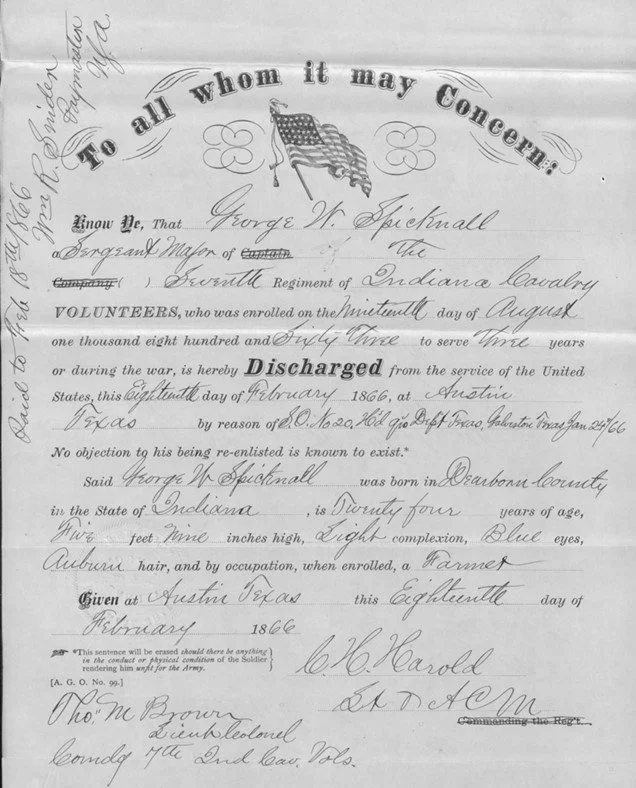 To all whom it may Concern:
Know Ye, That George W. Spicknall
a Sergeant Major of Captain of the
Company ( ) Seventh Regiment of Indiana Cavalry
VOLUNTEERS, who was enrolled on the Nineteenth day of August
one thousand eight hundred and Sixty Three to serve Three years
or during the war, is hereby Discharged from the service of the United
States, this Eighteenth day of February 1866, at Austin
Texas by reason of S.O. No 20. Hd qrs Dept Texas, Galveston Texas Jan 24th/66
No objection to his being re-enlisted is known to exist.*
Said George W. Spicknall was born in Dearborn County
in the State of Indiana, is Twenty four years of age,
Five feet Nine inches high, Light complexion, Blue eyes,
Auburn hair, and by occupation, when enrolled, a Farmer
Given at Austin Texas this Eighteenth day of
February 1866
*This sentence will be erased should there be anything
in the conduct or physical condition of the Soldier
rendering him unfit for the Army.
[A. G. O. No. 99.]
C. H. Harold
Lt & A C M
Commanding the Reg't.
Tho. M Brown
Lieut Colonel
Comdg 7th Ind Cav. Vols.
Paid to Feb 18th/1866
Wm R. Snider
Paymaster
U.S.A.